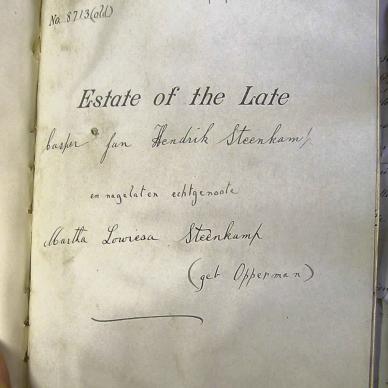 No. 8713 (old)
Estate of the Late
Casper Jan Hendrik Steenkamp
en nagelaten echtgenoote
Martha Lowiesa Steenkamp
(geb Opperman)